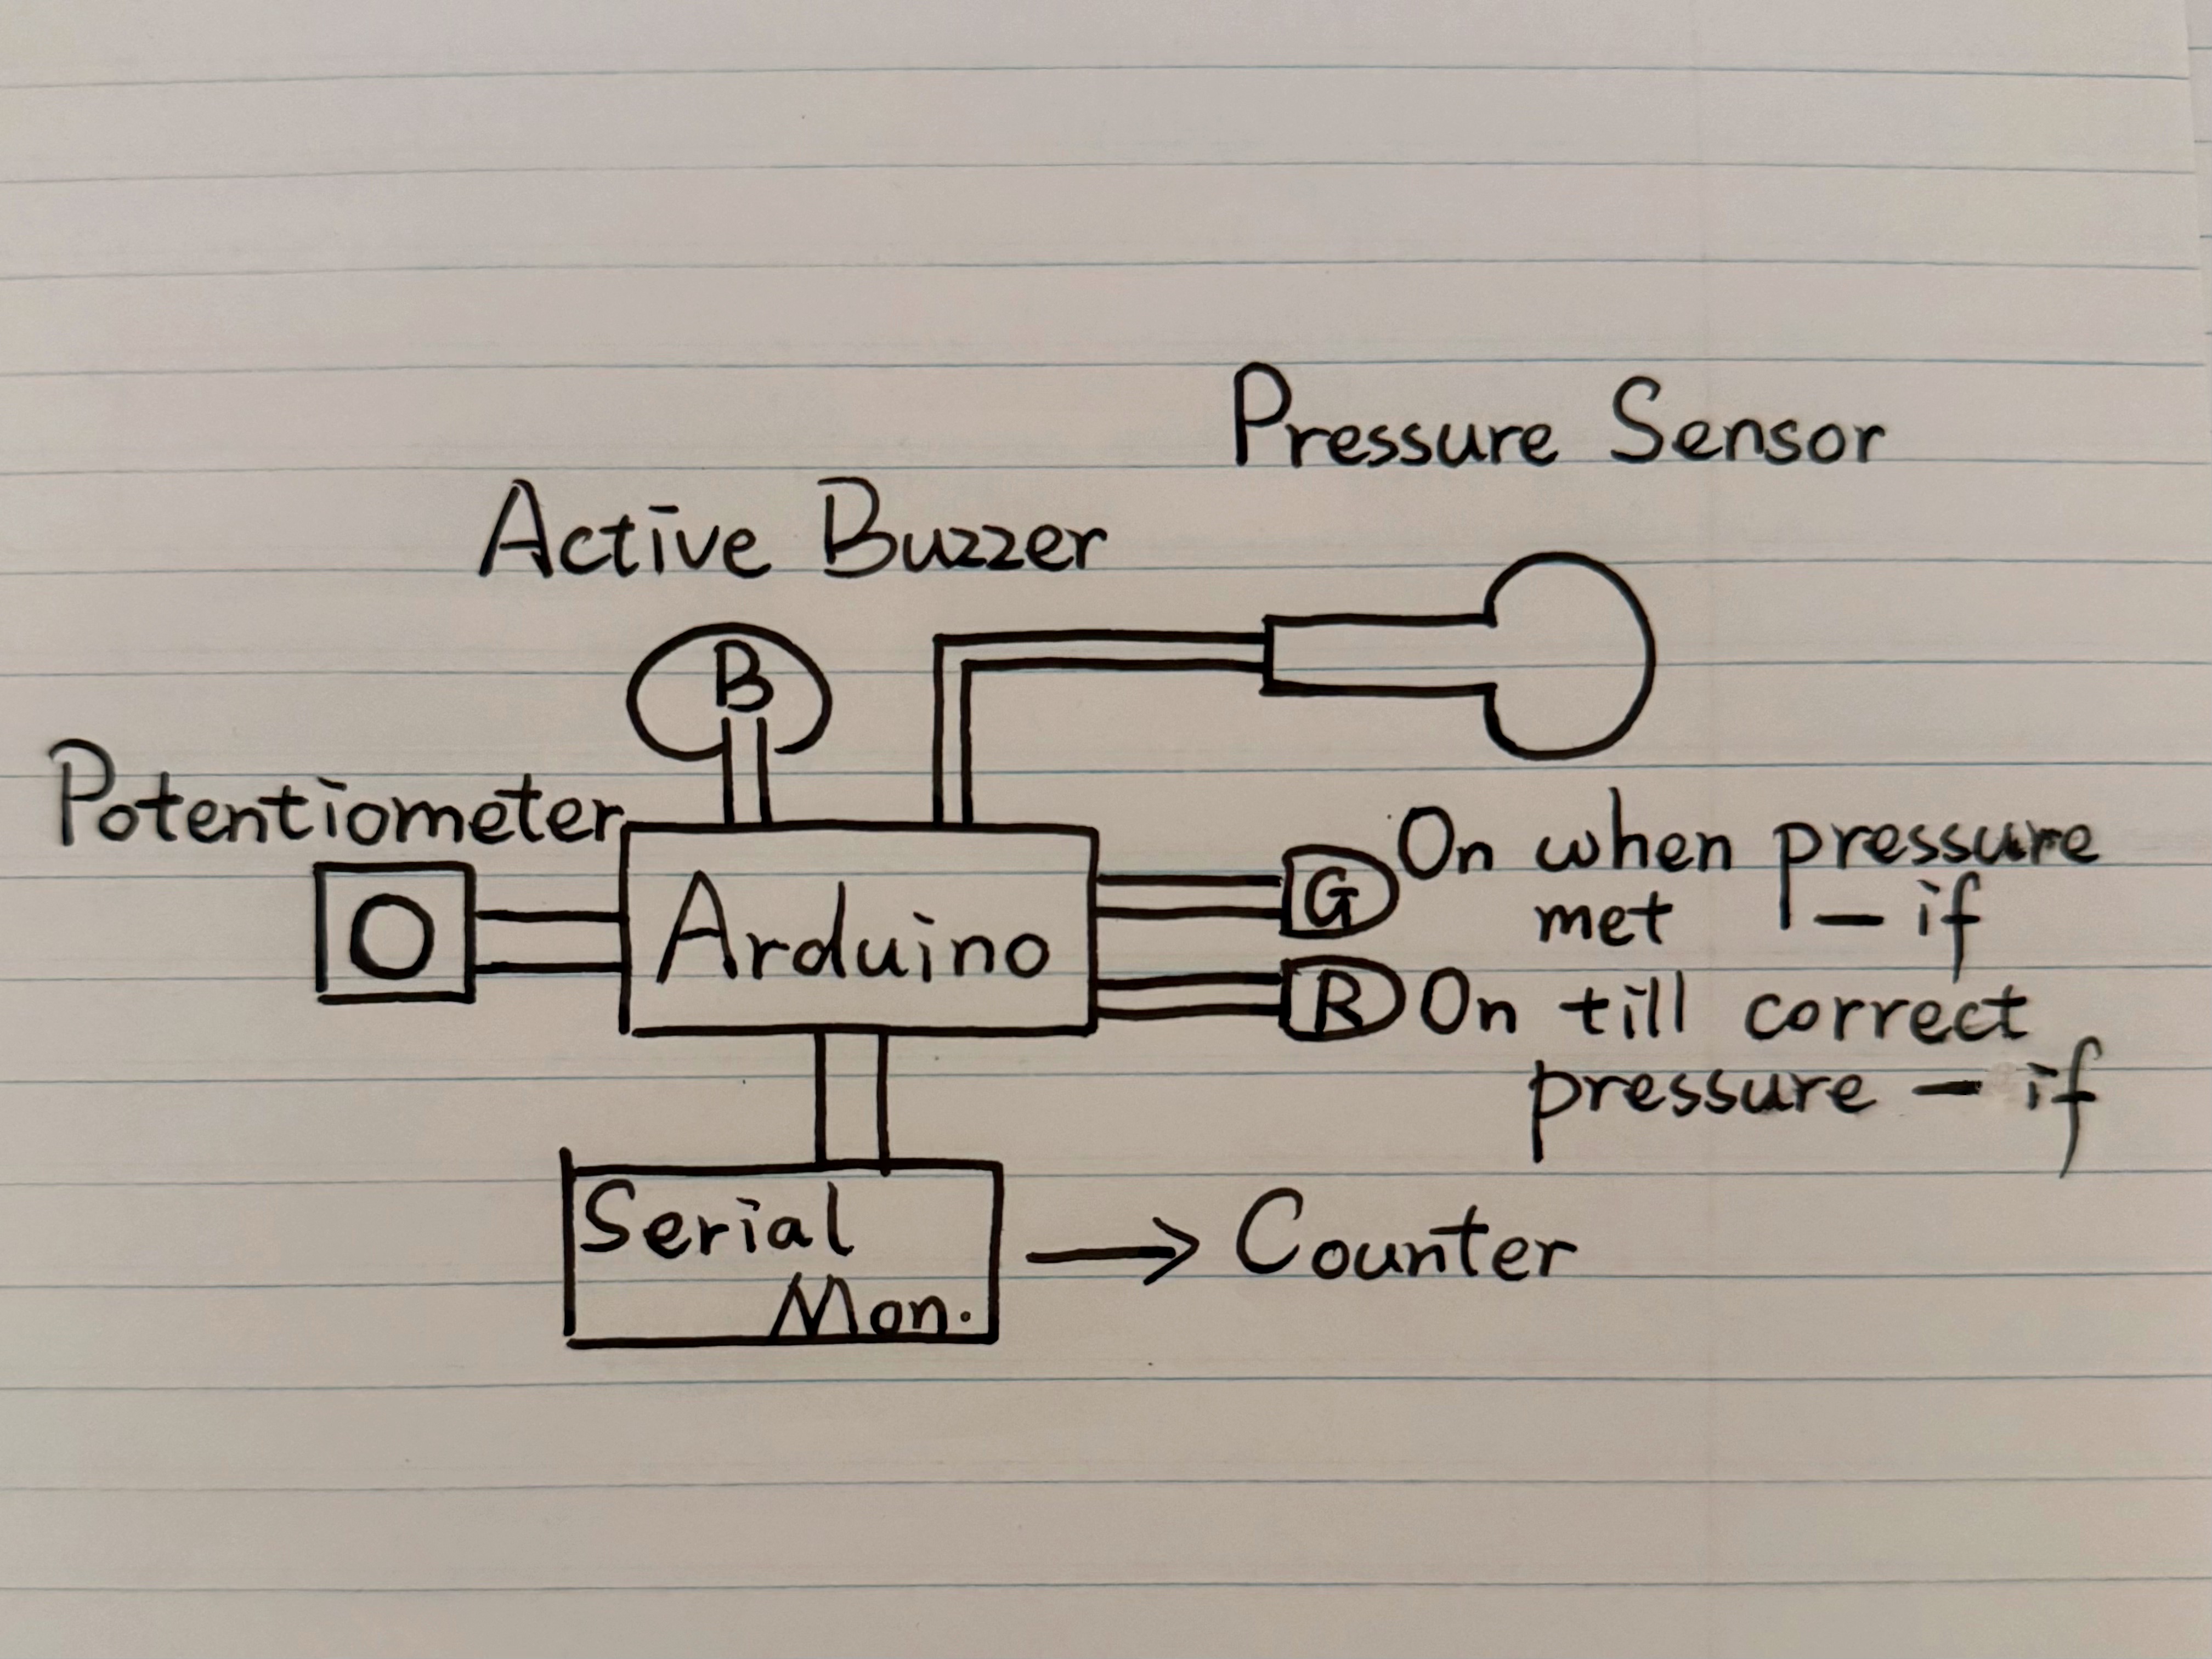 Pressure Sensor
Active Buzzer
B
Potentiometer
Arduino
G
On when pressure
met - if
R
On till correct
pressure - if
Serial
Mon.
→ Counter